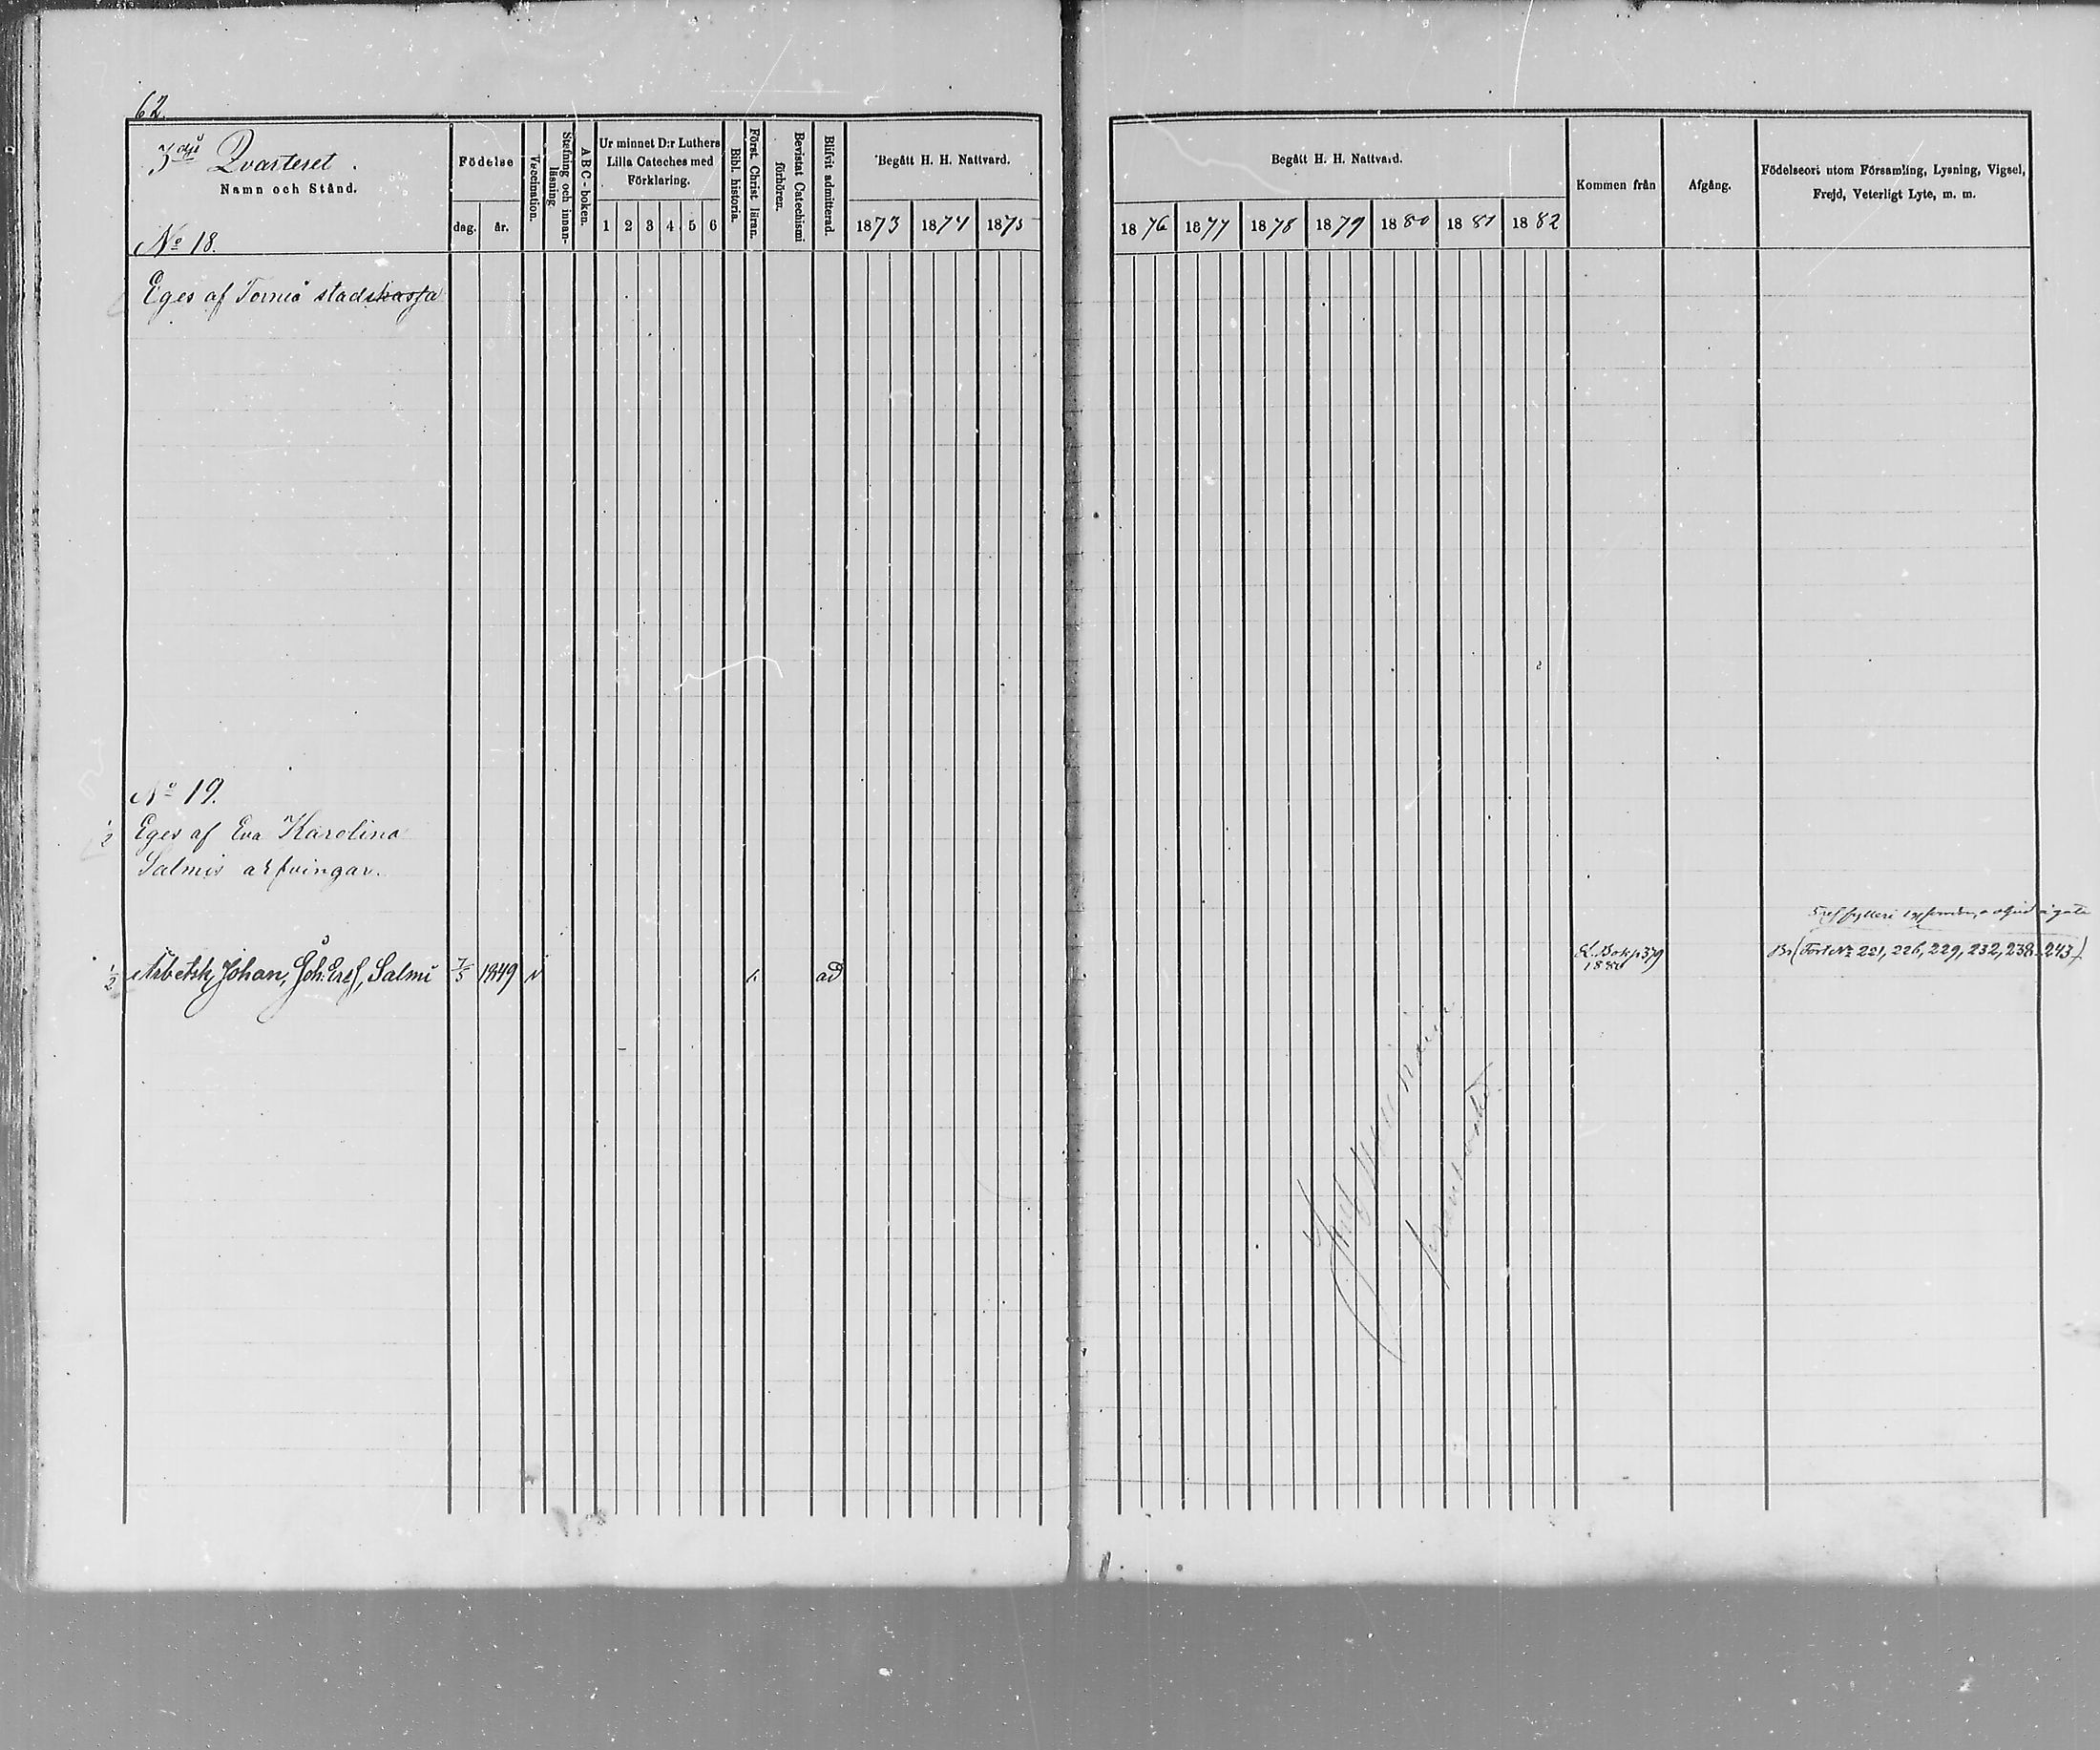 62.
3dje Qvarteret.
Namn och Stånd.
Födelse
dag.
år.
Vaccination.
Stafning och innan-
läsning
ABC-boken.
Ur minnet D:r Luthers
Lilla Cateches med
Förklaring.
1 2 3 4 5 6
Bibl. historia.
Först. Christ. läran.
Bevistat Catechismi
förhören.
Blifvit admitterad.
Begått H. H. Nattvard.
1873 1874 1875
Begått H. H. Nattvard.
1876 1877 1878 1879 1880 1881 1882
Kommen från
Afgång.
Födelseort utom Församling, Lysning, Vigsel,
Frejd, Veterligt Lyte, m. m.
No 18.
Eges af Torneå stadskassa
No 19.
1/2 Eges af Eva Karolina
Salmis arfvingar.
1/2 Arbetsk Johan, Joh. Ersf, Salmi 7/5 1849 v ad
K. Bok p 379
1880
Br (Fört. No 221, 226, 229, 232, 238, 243)